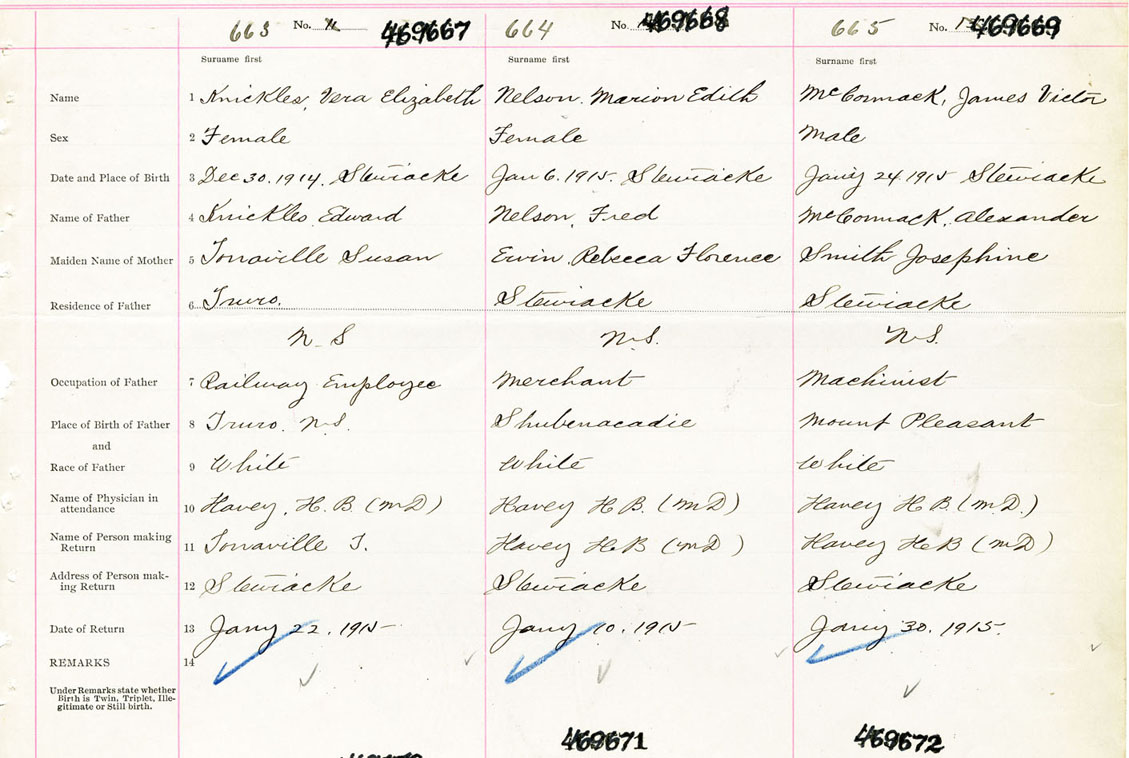 663 No. 469667 664 No. 469668 665 No. 469669
Surname first Surname first Surname first
Name 1 Knickles, Vera Elizabeth Nelson, Marion Edith McCormack, James Victor
Sex 2 Female Female Male
Date and Place of Birth 3 Dec 30. 1914, Stewiacke Jan 6. 1915. Stewiacke Jany 24 1915 Stewiacke
Name of Father 4 Knickles Edward Nelson, Fred McCormack, Alexander
Maiden Name of Mother 5 Susan Erwin Rebecca Florence Smith Josephine
Residence of Father 6 Truro. Stewiacke Stewiacke
N. S N.S. N.S.
Occupation of Father 7 Railway Employee Merchant Machinist
Place of Birth of Father 8 Truro. N.S. Shubenacadie Mount Pleasant
and
Race of Father 9 White White White
Name of Physician in
attendance 10 Havey, H. B. (M.D) Havey H B. (M.D) Havey H B. (M.D.)
Name of Person making
Return 11 Havey H B (M.D) Havey H B (M.D)
Address of Person mak-
ing Return 12 Stewiacke Stewiacke Stewiacke
Date of Return 13 Jany 22. 1915 Jany 10. 1915 Jany 30. 1915.
REMARKS 14
Under Remarks state whether
Birth is Twin, Triplet, Ille-
gitimate or Still birth.
469671 469672